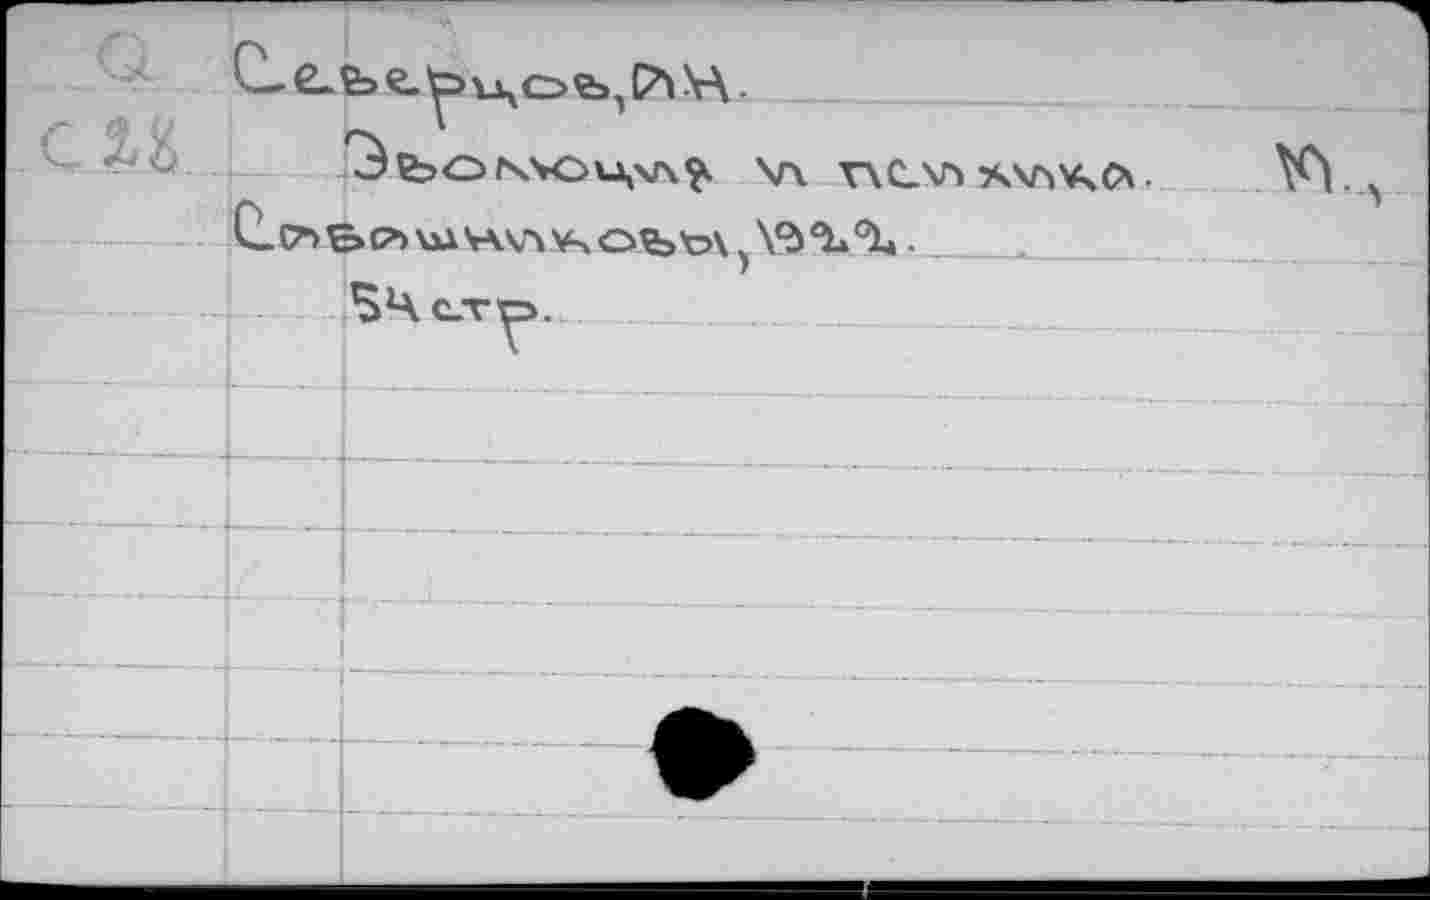 Q
Северцов, А.Н.
С 28
Эволюция и психика. М.,
Сабашниковы, 1922.
54 стр.